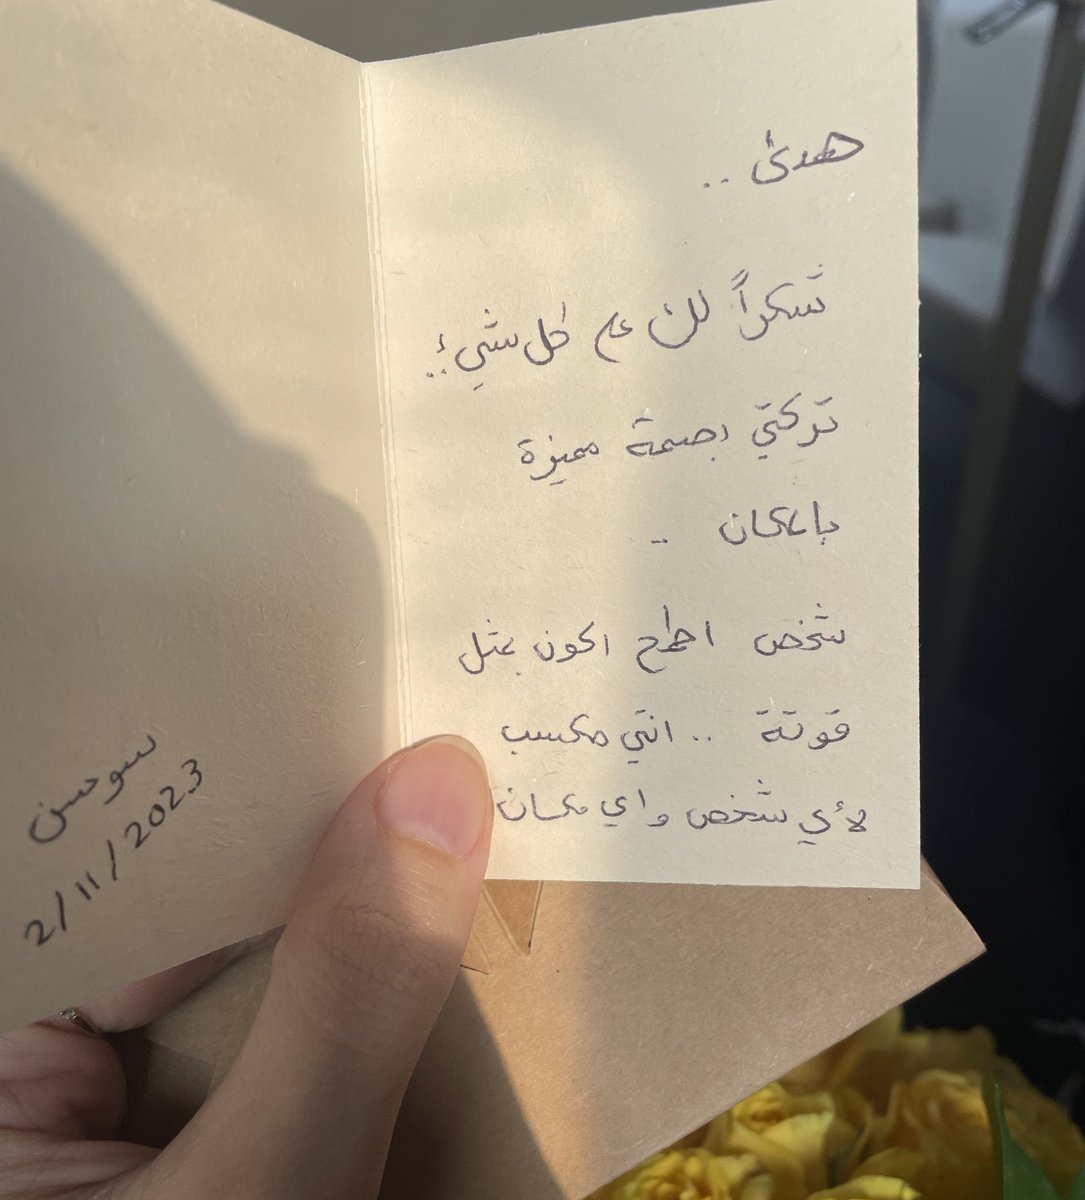 هدى ..
شكراً لك على كل شيء ..
تركتي بصمة مميزة
بالمكان ..
شخص اطمح اكون بمثل
قوته .. انتي مكسب
لأي شخص و اي مكان
سوسن
2/11/2023